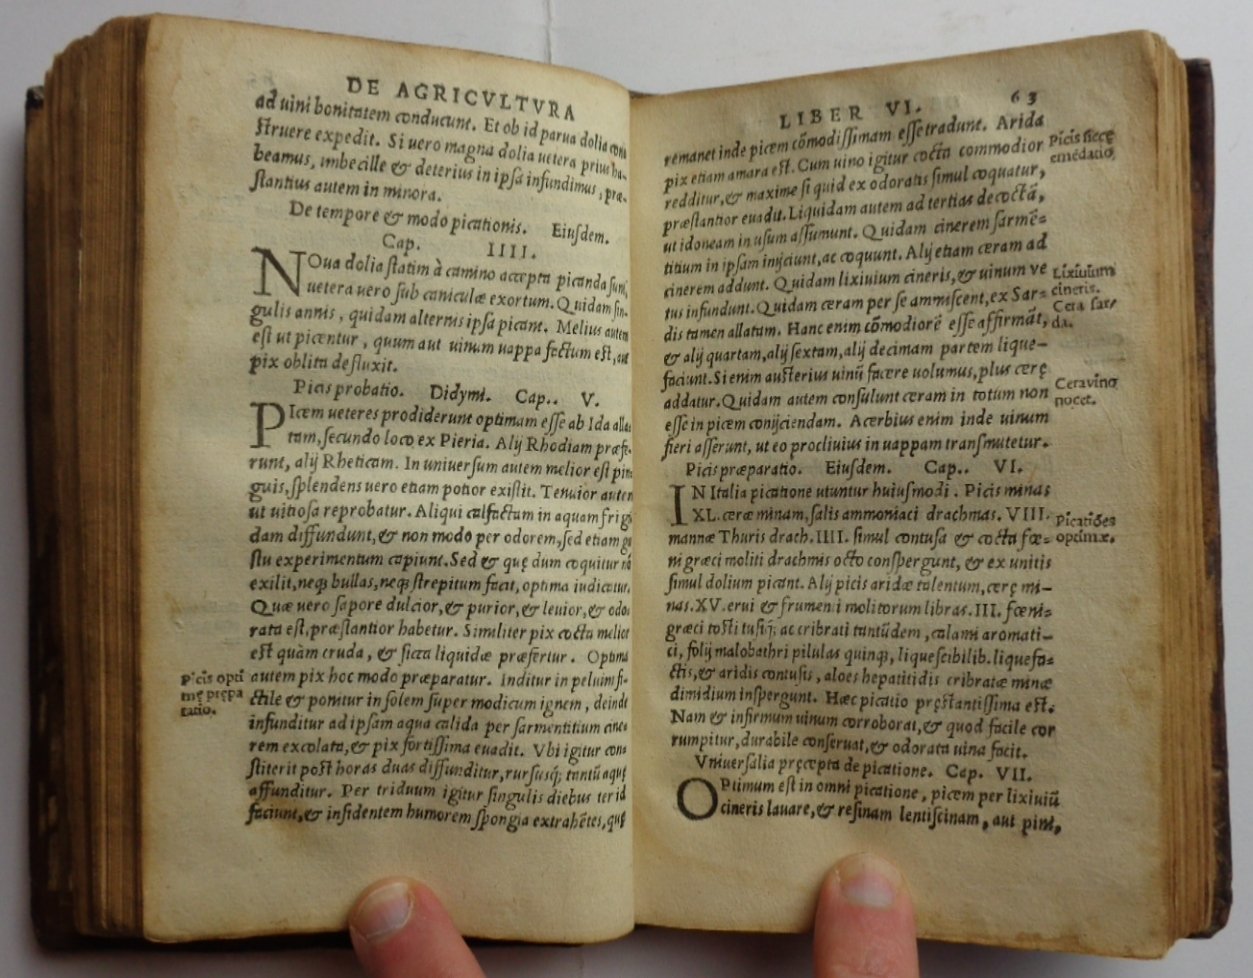 DE AGRICVLTVRA
ad uini bonitatem conducunt. Et ob id parua dolia con
ſtruere expedit. Si uero magna dolia uetera prius ha-
beamus, imbecille & deterius in ipſa infundimus, præ-
ſtantius autem in minora.
De tempore & modo picationis. Eiuſdem.
Cap. IIII.
NOua dolia ſtatim à camino accepta picanda ſunt,
uetera uero ſub caniculæ exortum. Quidam ſin-
gulis annis, quidam alternis ipſa picant. Melius autem
eſt ut picentur, quum aut uinum uappa factum eſt, aut
pix oblita defluxit.
Picis probatio. Didymi. Cap.. V.
PIcem ueteres prodiderunt optimam eſſe ab Ida alla
tam, ſecundo loco ex Pieria. Alij Rhodiam præfe-
runt, alij Rheticam. In uniuerſum autem melior eſt pin
guis, ſplendens uero etiam potior exiſtit. Tenuior autem
ut uitioſa reprobatur. Aliqui calfactam in aquam frigi
dam diffundunt, & non modo per odorem, ſed etiam gu
ſtu experimentum capiunt. Sed & quę dum coquitur nõ
exilit, neqꝫ bullas, neqꝫ ſtrepitum facit, optima iudicatur.
Quæ uero ſapore dulcior, & purior, & leuior, & odo
rata eſt, præſtantior habetur. Similiter pix cocta melior
eſt quàm cruda, & ſicca liquidæ præfertur. Optima
Picis opti
mę prępa
ratio.
autem pix hoc modo præparatur. Inditur in peluim fi-
ctile & ponitur in ſolem ſuper modicum ignem, deinde
infunditur ad ipſam aqua calida per ſarmentitium cine
rem excolata, & pix fortiſſima euadit. Vbi igitur con
ſtiterit poſt horas duas diffunditur, rurſusqꝫ tantũ aquę
affunditur. Per triduum igitur ſingulis diebus ter id
faciunt, & inſidentem humorem ſpongia extrahẽtes, quę
LIBER VI. 63
remanet inde picem cõmodiſſimam eſſe tradunt. Arida
Picis ſiccę
emẽdatio.
pix etiam amara eſt. Cum uino igitur cocta commodior
redditur, & maxime ſi quid ex odoratis ſimul coquatur,
præſtantior euadit. Liquidam autem ad tertias decoctã,
ut idoneam in uſum aſſumunt. Quidam cinerem ſarmẽ-
titium in ipſam inijciunt, ac coquunt. Alij etiam ceram ad
cinerem addunt. Quidam lixiuium cineris, & uinum ve
Lixiuium
cineris.
Cera ſar/
da.
tus infundunt. Quidam ceram per ſe ammiſcent, ex Sar-
dis tamen allatam. Hanc enim cõmodiorẽ eſſe affirmãt,
& alij quartam, alij ſextam, alij decimam partem lique-
faciunt. Si enim auſterius uinũ facere uolumus, plus cerę
Cera vino
nocet.
addatur. Quidam autem conſulunt ceram in totum non
eſſe in picem conijciendam. Acerbius enim inde uinum
fieri aſſerunt, ut eo procliuius in uappam tranſmutetur.
Picis præparatio. Eiuſdem. Cap.. VI.
IN Italia picatione utuntur huiuſmodi. Picis minas
XL. ceræ minam, ſalis ammoniaci drachmas. VIII.
Picatiões
optimæ.
mannæ Thuris drach. IIII. ſimul contuſa & cocta fœ-
ni græci moliti drachmis octo conſpergunt, & ex unitis
ſimul dolium picant. Alij picis aridæ talentum, cerę mi-
nas. XV. erui & frumenti molitorum libras. III. fœni-
græci toſti tuſiqꝫ ac cribrati tantũdem, calami aromati-
ci, folij malobathri pilulas quinqꝫ, liqueſcibilib. liquefa-
ctis, & aridis contuſis, aloes hepatitidis cribratæ minæ
dimidium inſpergunt. Hæc picatio pręſtantiſſima eſt.
Nam & infirmum uinum corroborat, & quod facile cor
rumpitur, durabile conſeruat, & odorata uina facit.
Vniuerſalia pręcepta de picatione. Cap. VII.
OPtimum eſt in omni picatione, picem per lixiuiũ
cineris lauare, & reſinam lentiſcinam, aut pini,